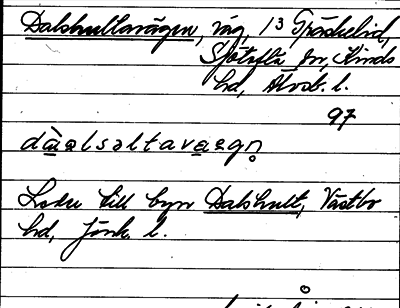 Dalshultavägen, väg, 13 Gräskelid,
Sjötofta sn, Kinds
hd, Älvsb. l.
97
dàalsəltavaegn̥
Leder till byn Dalshult, Västbo
hd, Jönk. l.